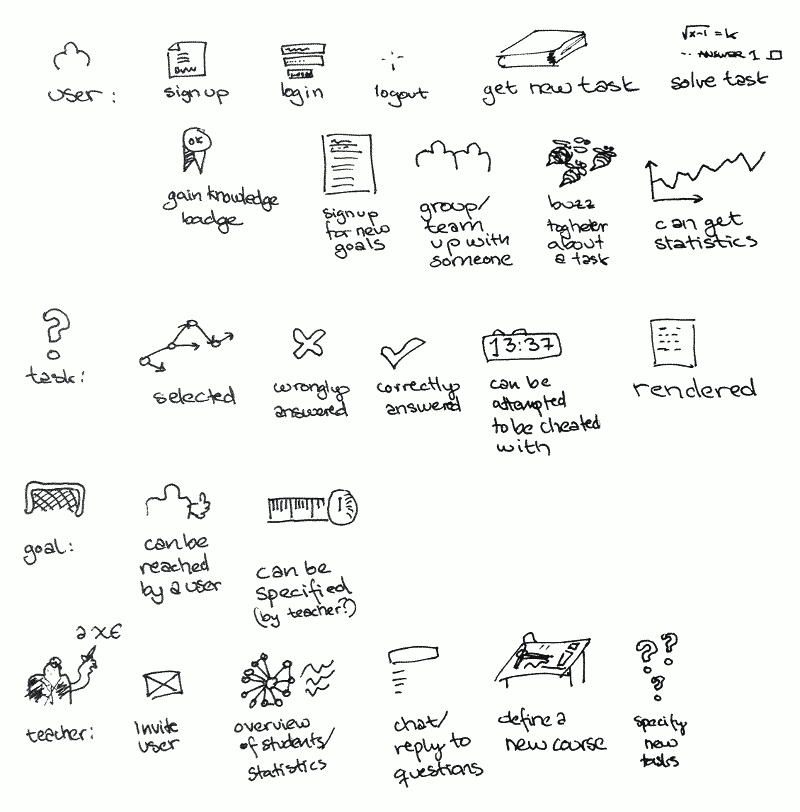 √x-1 = k
ANSWER 1
user: sign up login logout get new task solve task
OK
gain knowledge
badge
sign up
for new
goals
group/
team
up with
someone
buzz
togheter
about
a task
can get
statistics
?
13:37
task: selected
wrongly
answered
correctly
answered
can be
attempted
to be cheated
with
rendered
goal:
can be
reached
by a user
can be
specified
(by teacher?)
teacher:
Invite
user
overview
of students/
statistics
chat/
reply to
questions
define a
new course
? ?
?
specify
new
tasks